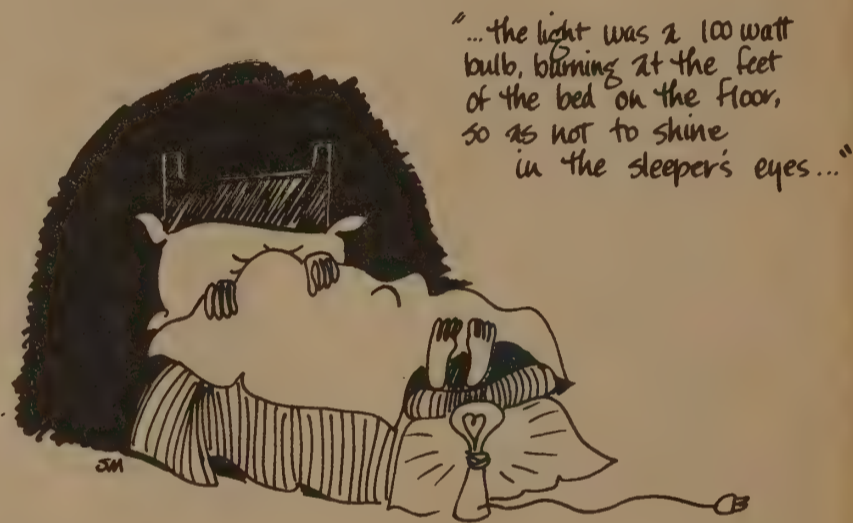 "... the light was a 100 watt
bulb, burning at the feet
of the bed on the floor,
so as not to shine
in the sleeper's eyes..."
JM